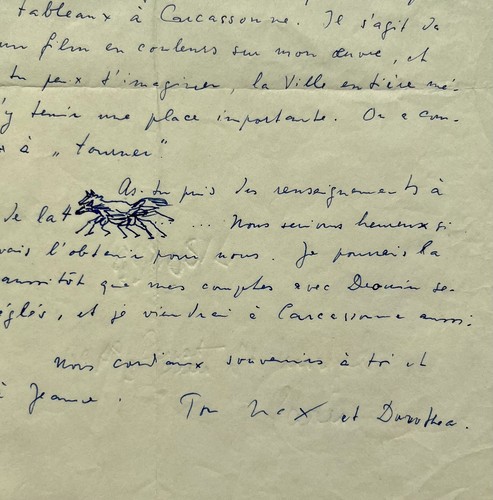 tableaux à Carcassonne. Il s'agit de
un film en couleurs sur mon œuvre, et
tu peux t'imaginer, la Ville entière mé-
y tenir une place importante. On a com-
à „tourner"
As-tu pris des renseignements à
de la 4 ... Nous serions heureux si
vais l'obtenir pour nous. Je pourrais la
aussitôt que mes comptes avec Drouin se-
églés, et je viendrai à Carcassonne aussi-
Nos cordiaux souvenirs à toi et
à Jeanne. Ton Max et Dorothea.